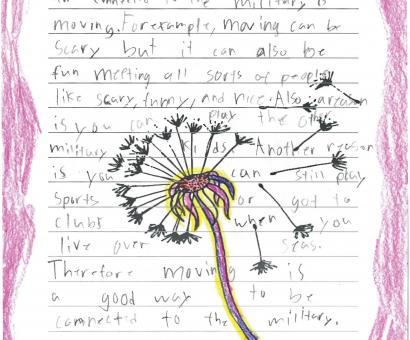 connected to the military is
moving. For example, moving can be
scary but it can also be
fun meeting all sorts of people
like scary, funny, and nice. Also, a reason
is you can play the other
military kids. Another reason
is you can still play
sports or got to
clubs when you
live over seas.
Therefore moving is
a good way to be
connected to the military.